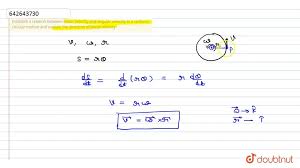 642643730
Establish a relation between linear velocity and angular velocity in a uniform circular motion and explain the direction of linear velocity.
v, ω, r
S = rθ
ds/dt = d/dt (rθ) = r dθ/dt
v = rω
v⃗ = ω⃗ × r⃗
ω
r
v
P
doubtnut